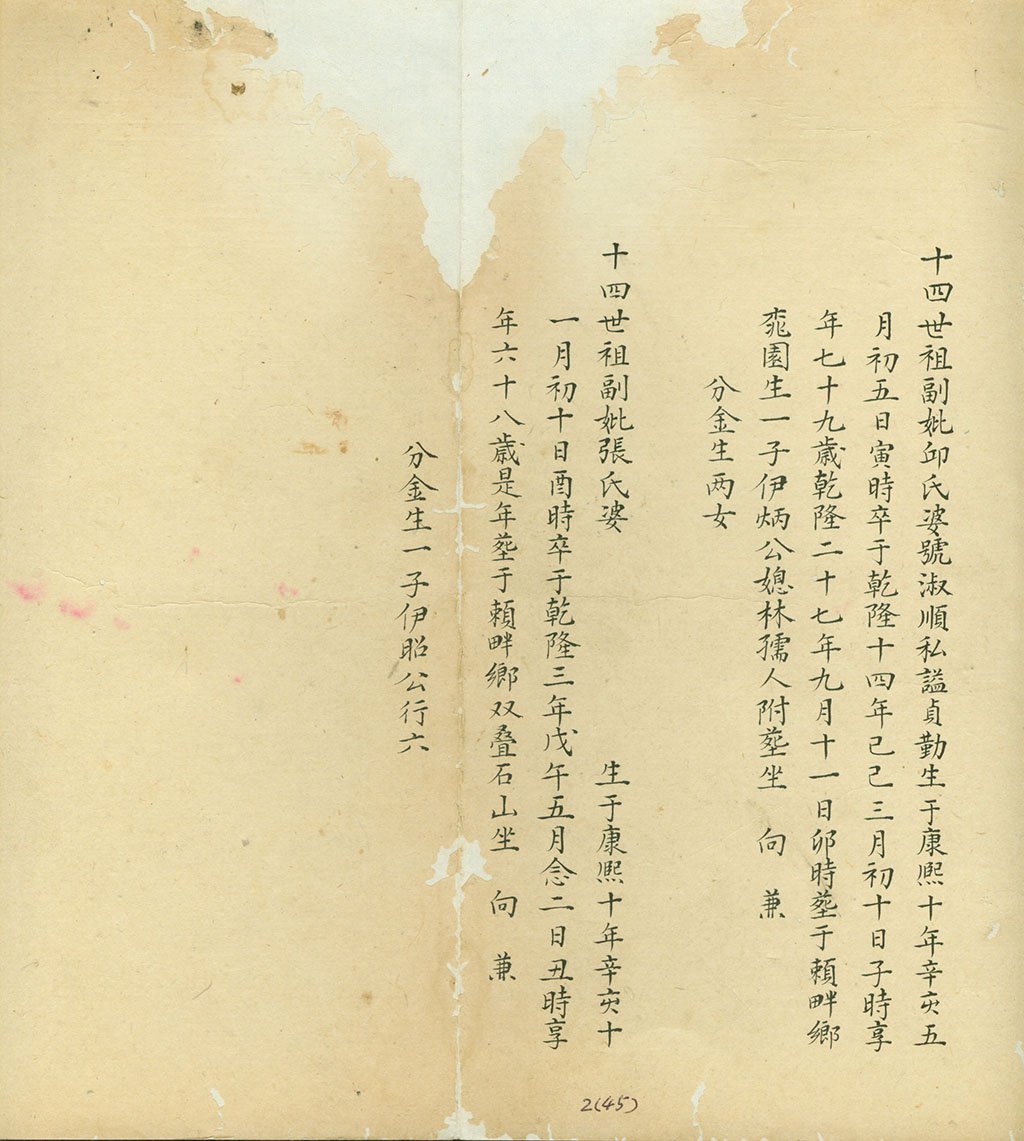 十四世祖副妣邱氏婆號淑順私諡貞勤生于康熙十年辛亥五
月初五日寅時卒于乾隆十四年己巳三月初十日子時享
年七十九歲乾隆二十七年九月十一日卯時塟于賴畔鄉
窕園生一子伊炳公媳林孺人附塟坐　向　兼
分金生两女
十四世祖副妣張氏婆　生于康熙十年辛亥十
一月初十日酉時卒于乾隆三年戊午五月念二日丑時享
年六十八歲是年塟于賴畔鄉双叠石山坐　向　兼
分金生一子伊昭公行六
2(45)